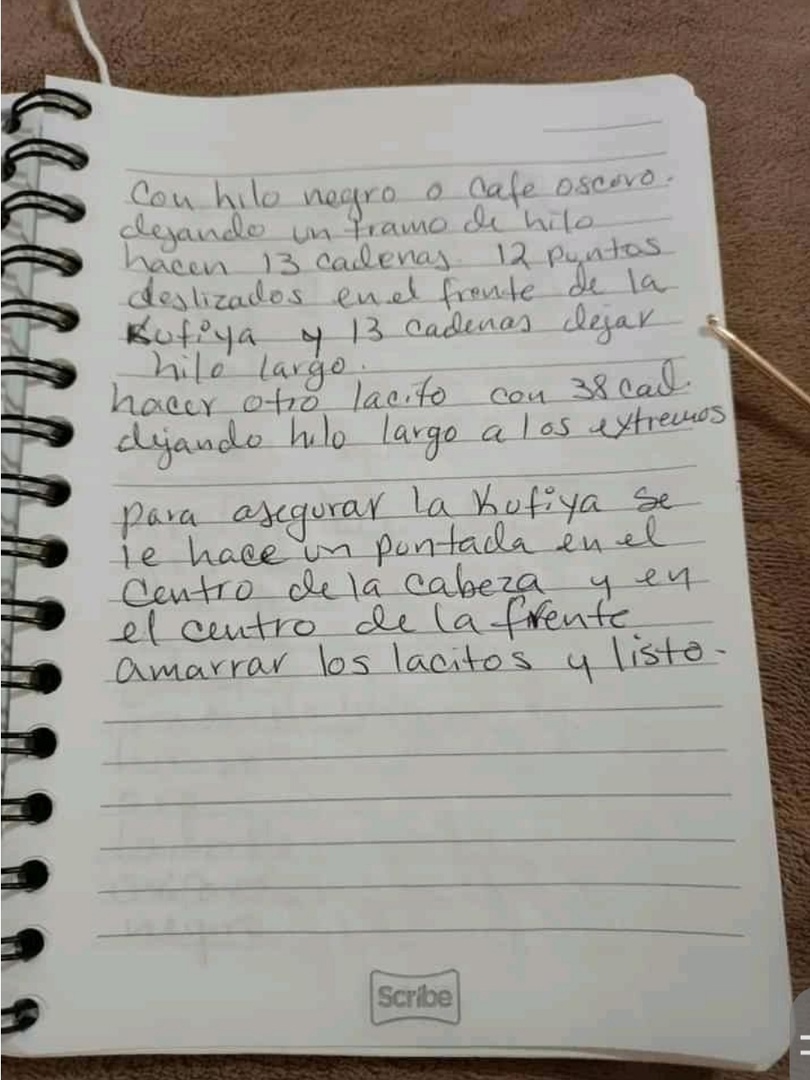 Con hilo negro o Cafe oscuro.
dejando un tramo de hilo
hacen 13 cadenas. 12 puntos
deslizados en el frente de la
Kufiya y 13 cadenas dejar
hilo largo.
hacer otro lacito con 38 cad.
dejando hilo largo a los extremos
para asegurar la Kufiya se
le hace un puntada en el
Centro de la cabeza y en
el centro de la frente
amarrar los lacitos y listo.
Scribe